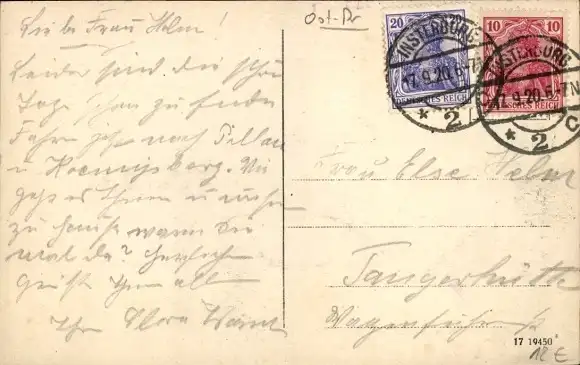 Ost-Pr
Liebe Frau Helm!
Leider sind die schön
Tage schon zu Ende
Fahren jetzt nach Pillau
u Koenigsberg. Wie
geht es Ihnen u
zu Hause waren Sie
mal da? Herzlich
grüßt Ihnen all
Ihr Clara
20
DEUTSCHES REICH
10
DEUTSCHES REICH
INSTERBURG
17.9.20.6-7N
* 2
INSTERBURG
17.9.20.6-7N
* 2 c
Frau Else Helm
Tangerhütte
17 19450
12 €